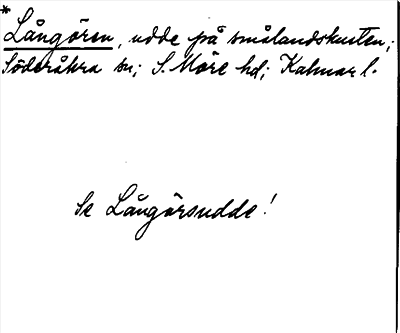 *
Långören, udde på smålandskusten;
Söderåkra sn; S. Möre hd; Kalmar l.
Se Långörsudde!